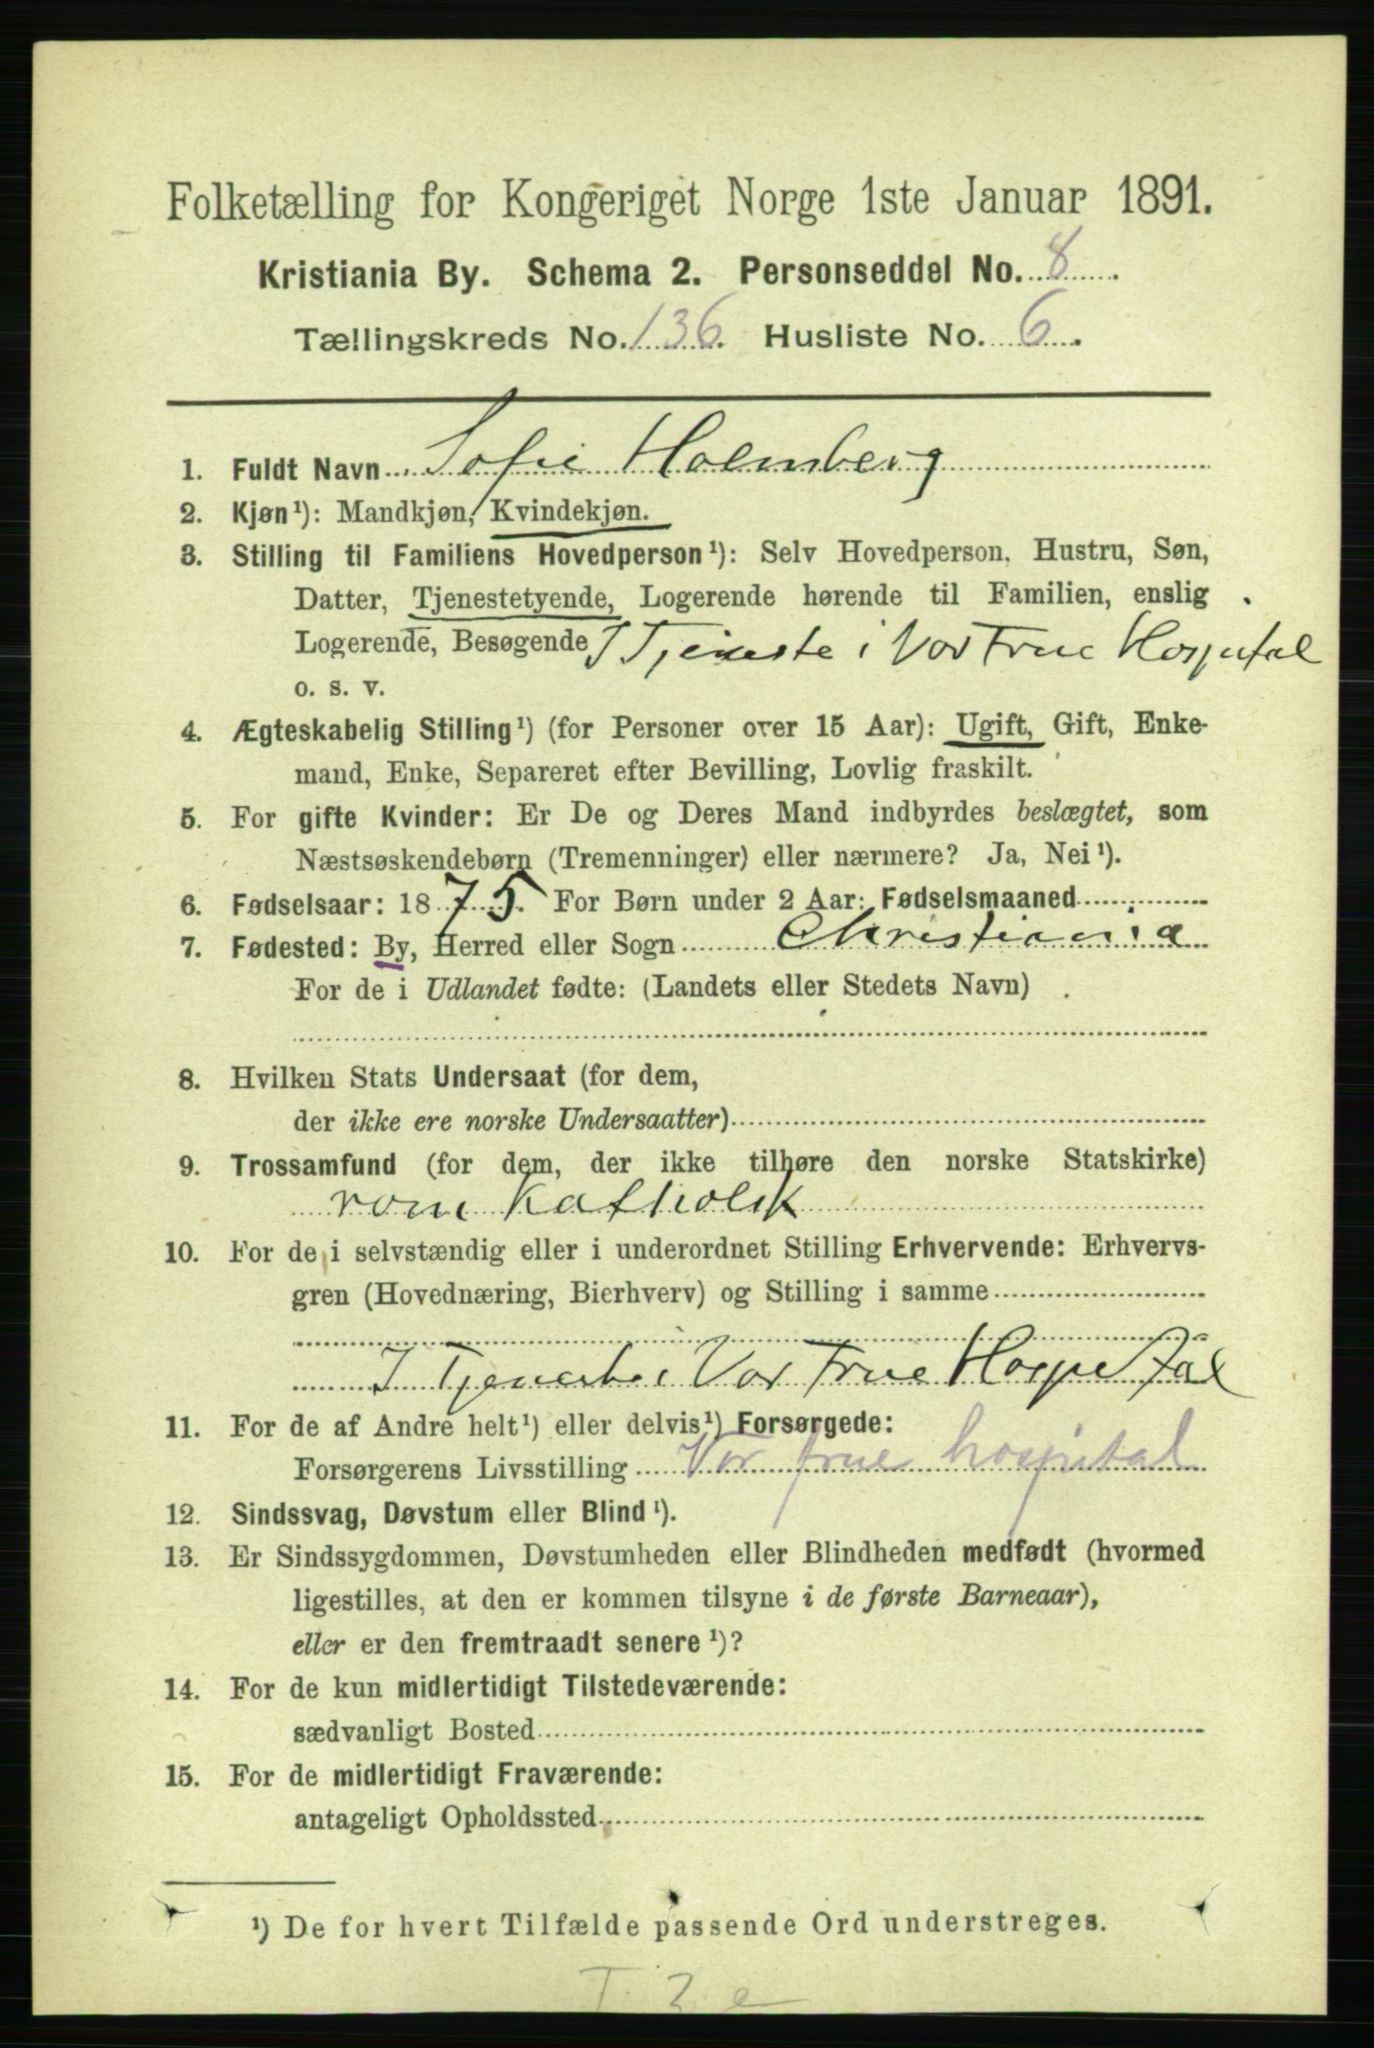 Folketælling for Kongeriget Norge 1ste Januar 1891.
Kristiania By. Schema 2. Personseddel No. 8.
Tællingskreds No. 136. Husliste No. 6.
1. Fuldt Navn Sofie Holmberg
2. Kjøn¹): Mandkjøn, Kvindekjøn.
3. Stilling til Familiens Hovedperson¹): Selv Hovedperson, Hustru, Søn,
Datter, Tjenestetyende, Logerende hørende til Familien, enslig
Logerende, Besøgende I Tjeneste i Vor Frue Hospital
o. s. v.
4. Ægteskabelig Stilling¹) (for Personer over 15 Aar): Ugift, Gift, Enke-
mand, Enke, Separeret efter Bevilling, Lovlig fraskilt.
5. For gifte Kvinder: Er De og Deres Mand indbyrdes beslægtet, som
Næstsøskendebørn (Tremenninger) eller nærmere? Ja, Nei¹).
6. Fødselsaar: 1875. For Børn under 2 Aar: Fødselsmaaned
7. Fødested: By, Herred eller Sogn Christiania
For de i Udlandet fødte: (Landets eller Stedets Navn)
8. Hvilken Stats Undersaat (for dem,
der ikke ere norske Undersaatter)
9. Trossamfund (for dem, der ikke tilhøre den norske Statskirke)
rom katholsk
10. For de i selvstændig eller i underordnet Stilling Erhvervende: Erhvervs-
gren (Hovednæring, Bierhverv) og Stilling i samme
I Tjeneste i Vor Frue Hospital
11. For de af Andre helt¹) eller delvis¹) Forsørgede:
Forsørgerens Livsstilling Vor frue hospital
12. Sindssvag, Døvstum eller Blind¹).
13. Er Sindssygdommen, Døvstumheden eller Blindheden medfødt (hvormed
ligestilles, at den er kommen tilsyne i de første Barneaar),
eller er den fremtraadt senere¹)?
14. For de kun midlertidigt Tilstedeværende:
sædvanligt Bosted
15. For de midlertidigt Fraværende:
antageligt Opholdssted
¹) De for hvert Tilfælde passende Ord understreges.